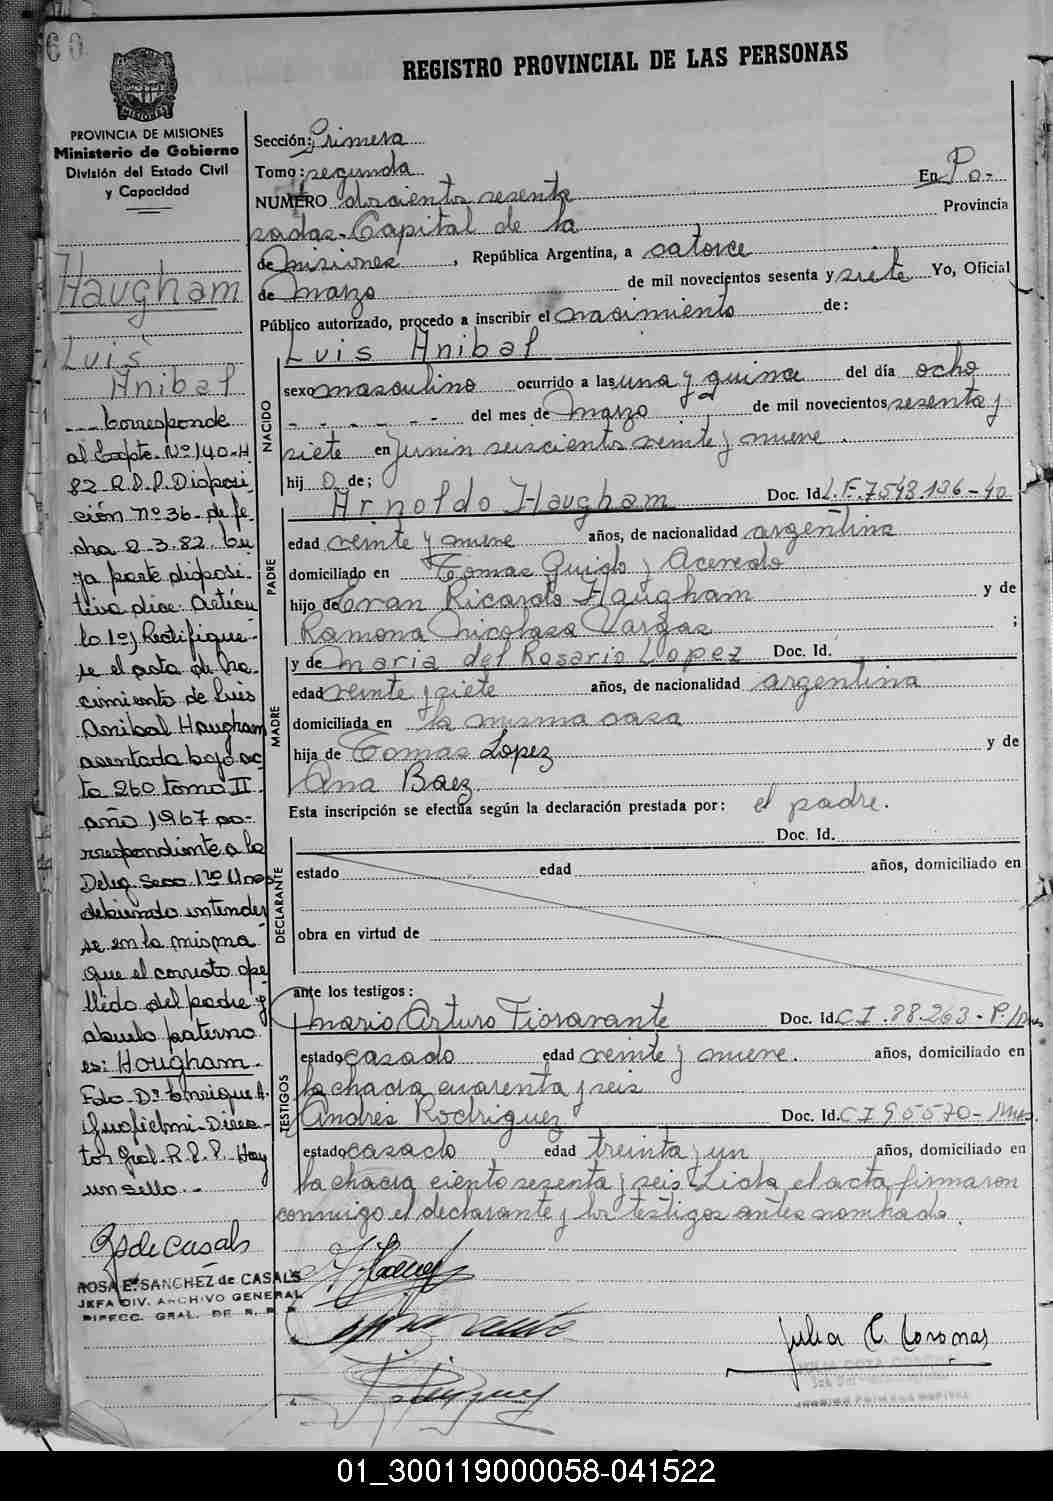 60
REGISTRO PROVINCIAL DE LAS PERSONAS
MISIONES
PROVINCIA DE MISIONES
Ministerio de Gobierno
División del Estado Civil
y Capacidad
Haugham
Luis
Anibal
Corresponde
al Expte. Nº 140-H
82 R.P.P. Disposi
ción nº 36- de fe
cha 2-3.82. cu
ya parte disposi
tiva dice: Artícu
lo 1º) Rectifique-
se el acta de na
cimiento de Luis
Anibal Haugham
asentada bajo ac
ta 260 tomo II
año 1967 co-
rrespondiente a la
Deleg. Secc. 1ra
debiendo entender
se en la misma
que el correcto ape
llido del padre y
abuelo paterno
es: Hougham.
Fdo. Dr. Enrique A.
Direc-
tor Gral. R.P.P. Hay
un sello.-
RsdeCasals
ROSA E. SANCHEZ de CASALS
JEFA DIV. ARCHIVO GENERAL
DIRECC. GRAL. DE R. P. P.
Sección: Primera
Tomo: segunda
NUMERO doscientos sesenta
En Po-
sadas-Capital de la Provincia
de Misiones, República Argentina, a catorce
de Marzo de mil novecientos sesenta y siete Yo, Oficial
Público autorizado, procedo a inscribir el nacimiento de:
NACIDO
Luis Anibal
sexo masculino ocurrido a las una y quince del día ocho
- - - - - - del mes de Marzo de mil novecientos sesenta y
siete en Junin seiscientos veinte y nueve.
hij o de;
PADRE
Arnoldo Haugham Doc. Id. L.E. 7543.136-40
edad veinte y nueve años, de nacionalidad argentina
domiciliado en Tomas Guido y Acevedo
hijo de Evan Ricardo Haugham y de
Ramona Nicolasa Vargas ;
MADRE
y de Maria del Rosario Lopez Doc. Id.
edad veinte y siete años, de nacionalidad argentina
domiciliada en la misma casa
hija de Tomas Lopez y de
Ana Baez.
Esta inscripción se efectúa según la declaración prestada por: el padre.
DECLARANTE
Doc. Id.
estado edad años, domiciliado en
obra en virtud de
ante los testigos:
TESTIGOS
Mario Arturo Fioravante Doc. Id. C.I. 88.263-P./Mnes
estado casado edad veinte y nueve. años, domiciliado en
la chacra cuarenta y seis
Andres Rodriguez Doc. Id. C I 95570-Mnes.
estado casado edad treinta y un años, domiciliado en
la chacra ciento sesenta y seis-Lida el acta firmaron
conmigo el declarante y los testigos antes nombrado.
Julia C. Coronas
01_300119000058-041522